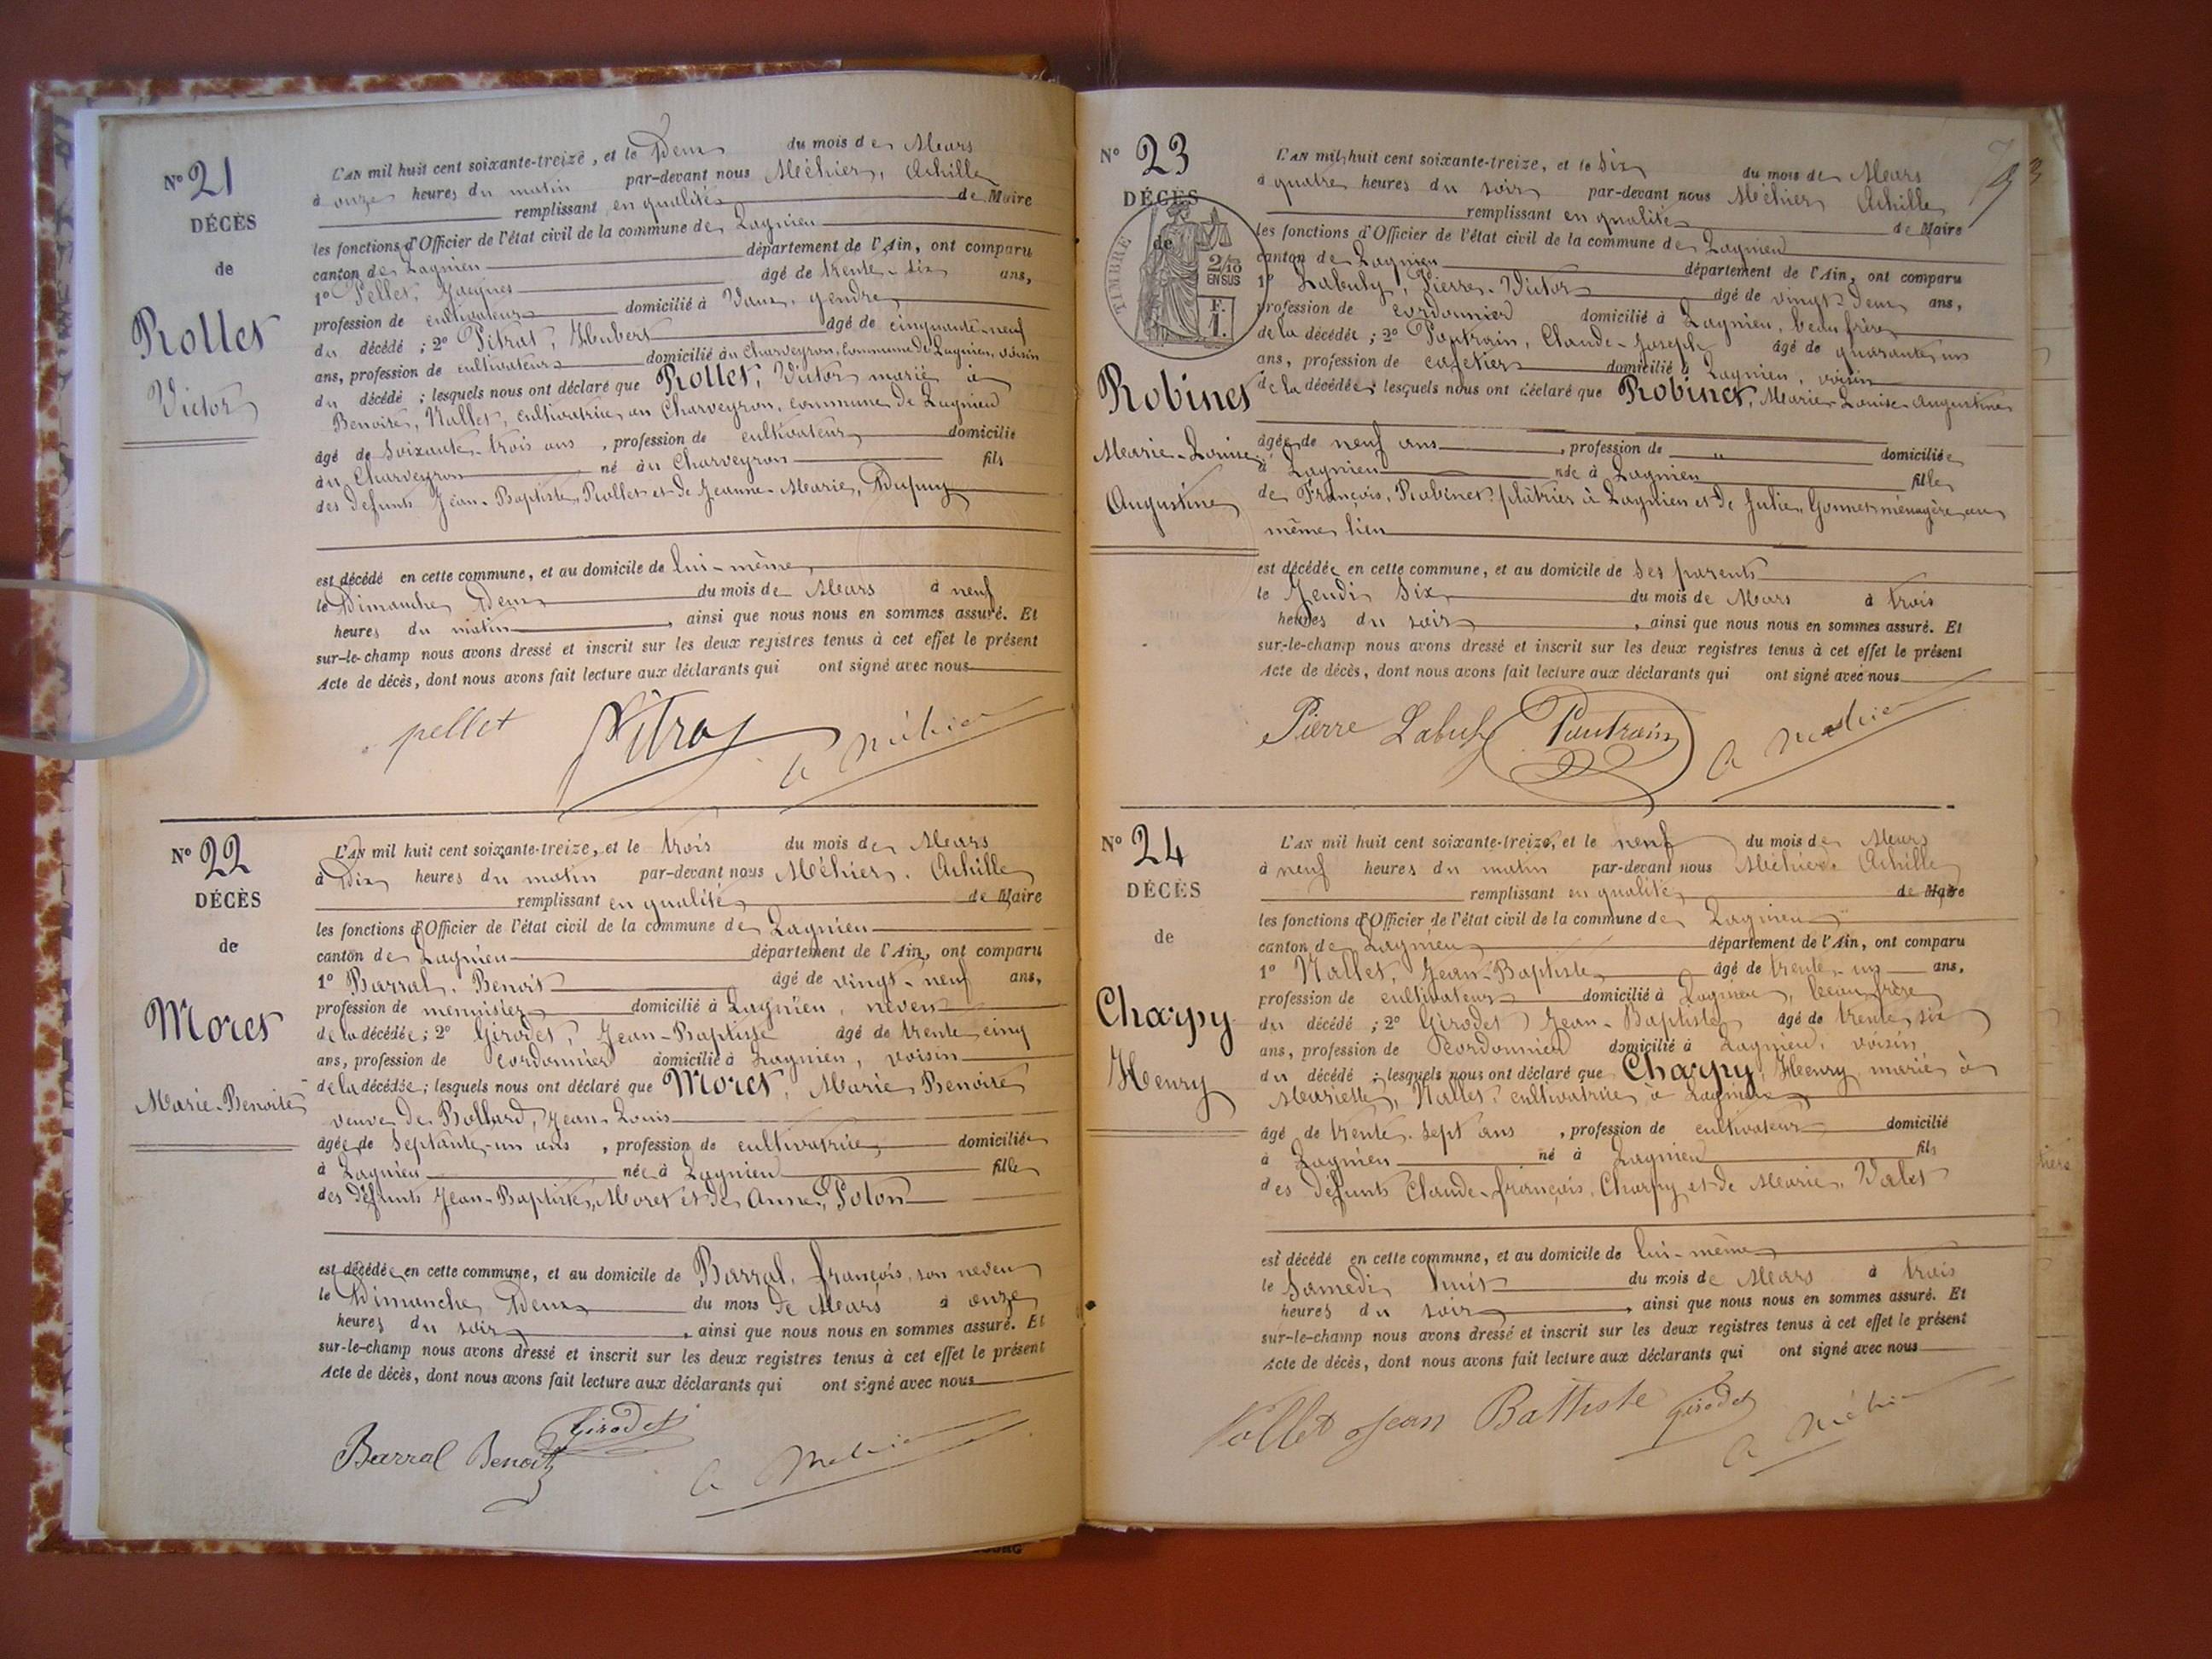 N° 21
DÉCÈS
de
Rollet
Victor
L'AN mil huit cent soixante-treize, et le Deux du mois de Mars
à onze heures du matin par-devant nous Méchier, Achille
remplissant en qualité de Maire
les fonctions d'Officier de l'état civil de la commune de Lagnieu
canton de Lagnieu département de l'Ain, ont comparu
1° Pellet, Jacques âgé de trente-six ans,
profession de cultivateur domicilié à Vaux, gendre
du décédé ; 2° Pitrat, Hubert âgé de cinquante-neuf
ans, profession de cultivateur domicilié au Charveyron, commune de Lagnieu, voisin
du décédé ; lesquels nous ont déclaré que Rollet, Victor marié à
Benoite, Nallet, cultivatrice au Charveyron, commune de Lagnieu
âgé de Soixante-trois ans, profession de cultivateur domicilié
au Charveyron né au Charveyron fils
des défunts Jean-Baptiste, Rollet et de Jeanne-Marie, Dupuy
est décédé en cette commune, et au domicile de lui-même
le Dimanche Deux du mois de Mars à neuf
heures du matin, ainsi que nous nous en sommes assuré. Et
sur-le-champ nous avons dressé et inscrit sur les deux registres tenus à cet effet le présent
Acte de décès, dont nous avons fait lecture aux déclarants qui ont signé avec nous
pellet Pitrat A Méchier
N° 22
DÉCÈS
de
Moret
Marie-Benoite
L'AN mil huit cent soixante-treize, et le trois du mois de Mars
à Dix heures du matin par-devant nous Méchier, Achille
remplissant en qualité de Maire
les fonctions d'Officier de l'état civil de la commune de Lagnieu
canton de Lagnieu département de l'Ain, ont comparu
1° Barral, Benoit âgé de vingt-neuf ans,
profession de menuisier domicilié à Lagnieu, neveu
de la décédée ; 2° Girodet, Jean-Baptiste âgé de trente cinq
ans, profession de Cordonnier domicilié à Lagnieu, voisin
de la décédée ; lesquels nous ont déclaré que Moret, Marie Benoite
veuve de Bollard, Jean-Louis
âgée de Septante-un ans, profession de cultivatrice domiciliée
à Lagnieu née à Lagnieu fille
des défunts Jean-Baptiste, Moret et de Anne, Polon
est décédée en cette commune, et au domicile de Barral, françois, son neveu
le Dimanche Deux du mois de Mars à onze
heures du soir, ainsi que nous nous en sommes assuré. Et
sur-le-champ nous avons dressé et inscrit sur les deux registres tenus à cet effet le présent
Acte de décès, dont nous avons fait lecture aux déclarants qui ont signé avec nous
Barral Benoit Girodet A Méchier
N° 23
DÉCÈS
de
TIMBRE
2/10
EN SUS
F.
1.
Robinet
Marie-Louise
Augustine
L'AN mil huit cent soixante-treize, et le Six du mois de Mars
à quatre heures du soir par-devant nous Méchier Achille
remplissant en qualité de Maire
les fonctions d'Officier de l'état civil de la commune de Lagnieu
canton de Lagnieu département de l'Ain, ont comparu
1° Labuly, Pierre-Victor âgé de vingt-deux ans,
profession de cordonnier domicilié à Lagnieu, beau frère
de la décédée ; 2° Pautrain, Claude-Joseph âgé de quarante un
ans, profession de cafetier domicilié à Lagnieu, voisin
de la décédée ; lesquels nous ont déclaré que Robinet, Marie-Louise-Augustine
âgée de neuf ans, profession de " domiciliée
à Lagnieu née à Lagnieu fille
de François, Robinet, plâtrier à Lagnieu et de Julie, Gonnet ménagère au
même lieu
est décédée en cette commune, et au domicile de ses parents
le Jeudi Six du mois de Mars à trois
heures du soir, ainsi que nous nous en sommes assuré. Et
sur-le-champ nous avons dressé et inscrit sur les deux registres tenus à cet effet le présent
Acte de décès, dont nous avons fait lecture aux déclarants qui ont signé avec nous
Pierre Labuly Pautrain A Méchier
N° 24
DÉCÈS
de
Charpy
Henry
L'AN mil huit cent soixante-treize, et le neuf du mois de Mars
à neuf heures du matin par-devant nous Méchier Achille
remplissant en qualité de Maire
les fonctions d'Officier de l'état civil de la commune de Lagnieu
canton de Lagnieu département de l'Ain, ont comparu
1° Nallet, Jean-Baptiste âgé de trente-un ans,
profession de cultivateur domicilié à Lagnieu, beau frère
du décédé ; 2° Girodet Jean-Baptiste âgé de trente six
ans, profession de Cordonnier domicilié à Lagnieu, voisin
du décédé ; lesquels nous ont déclaré que Charpy, Henry marié à
Mariette, Nallet, cultivatrice à Lagnieu
âgé de trente-sept ans, profession de cultivateur domicilié
à Lagnieu né à Lagnieu fils
des défunts Claude-françois, Charpy et de Marie, Valet
est décédé en cette commune, et au domicile de lui-même
le Samedi huit du mois de Mars à trois
heures du soir, ainsi que nous nous en sommes assuré. Et
sur-le-champ nous avons dressé et inscrit sur les deux registres tenus à cet effet le présent
Acte de décès, dont nous avons fait lecture aux déclarants qui ont signé avec nous
Nallet Jean Battiste Girodet A Méchier